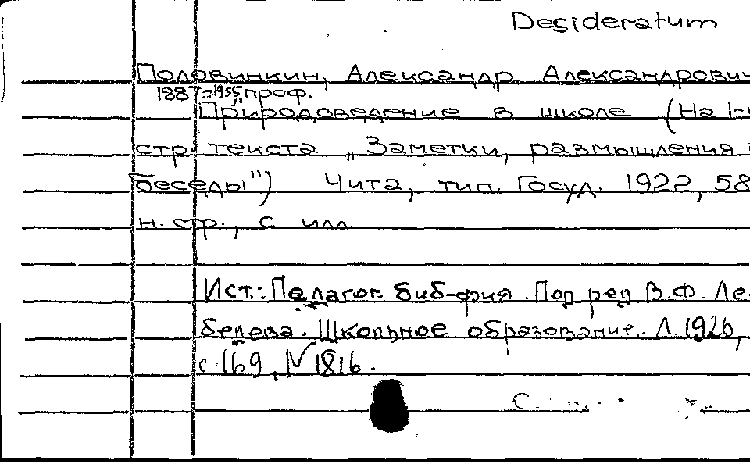 Desideratum
Половинкин, Александр Александрович
1887-1955, проф.
Природоведение в школе (На 1-й
стр. текста „Заметки, размышления и
беседы") Чита, тип. Госуд. 1922, 58
н. стр., с илл
Ист.: Педагог. биб-фия. Под ред В.Ф. Ле-
белева. Школьное образование. Л. 1926,
с. 169, № 1816.